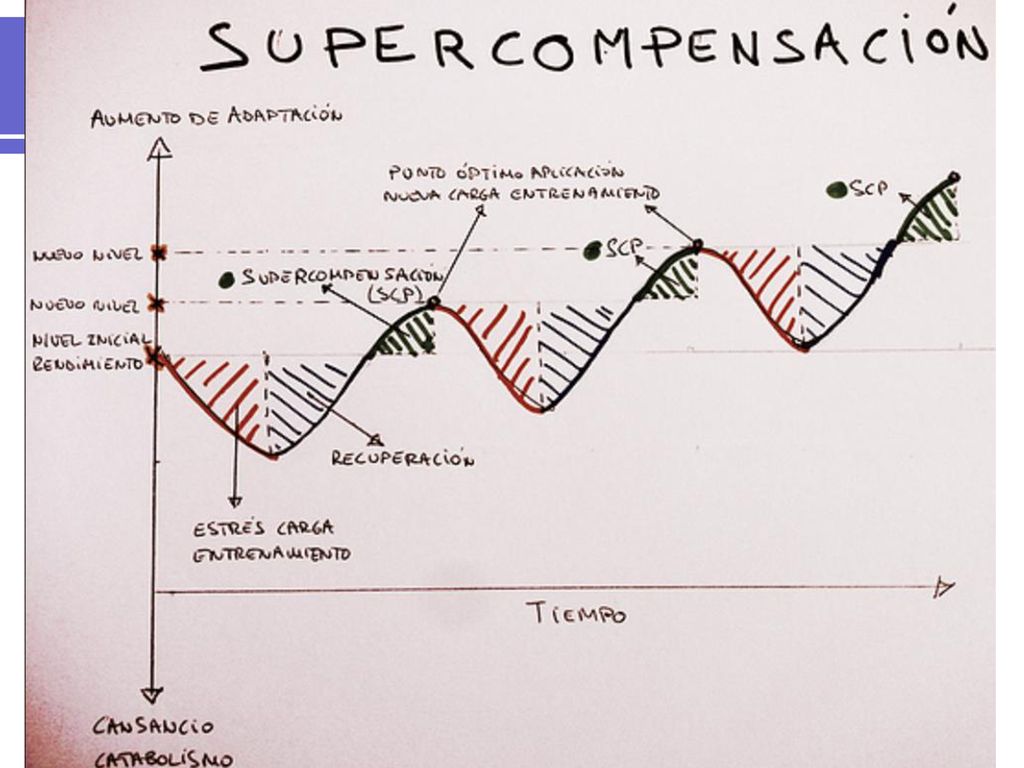 SUPERCOMPENSACIÓN
AUMENTO DE ADAPTACIÓN
PUNTO ÓPTIMO APLICACIÓN
NUEVA CARGA ENTRENAMIENTO
SCP
NUEVO NIVEL
SCP
SUPERCOMPENSACIÓN
(SCP)
NUEVO NIVEL
NIVEL INICIAL
RENDIMIENTO
RECUPERACIÓN
ESTRÉS CARGA
ENTRENAMIENTO
TIEMPO
CANSANCIO
CATABOLISMO